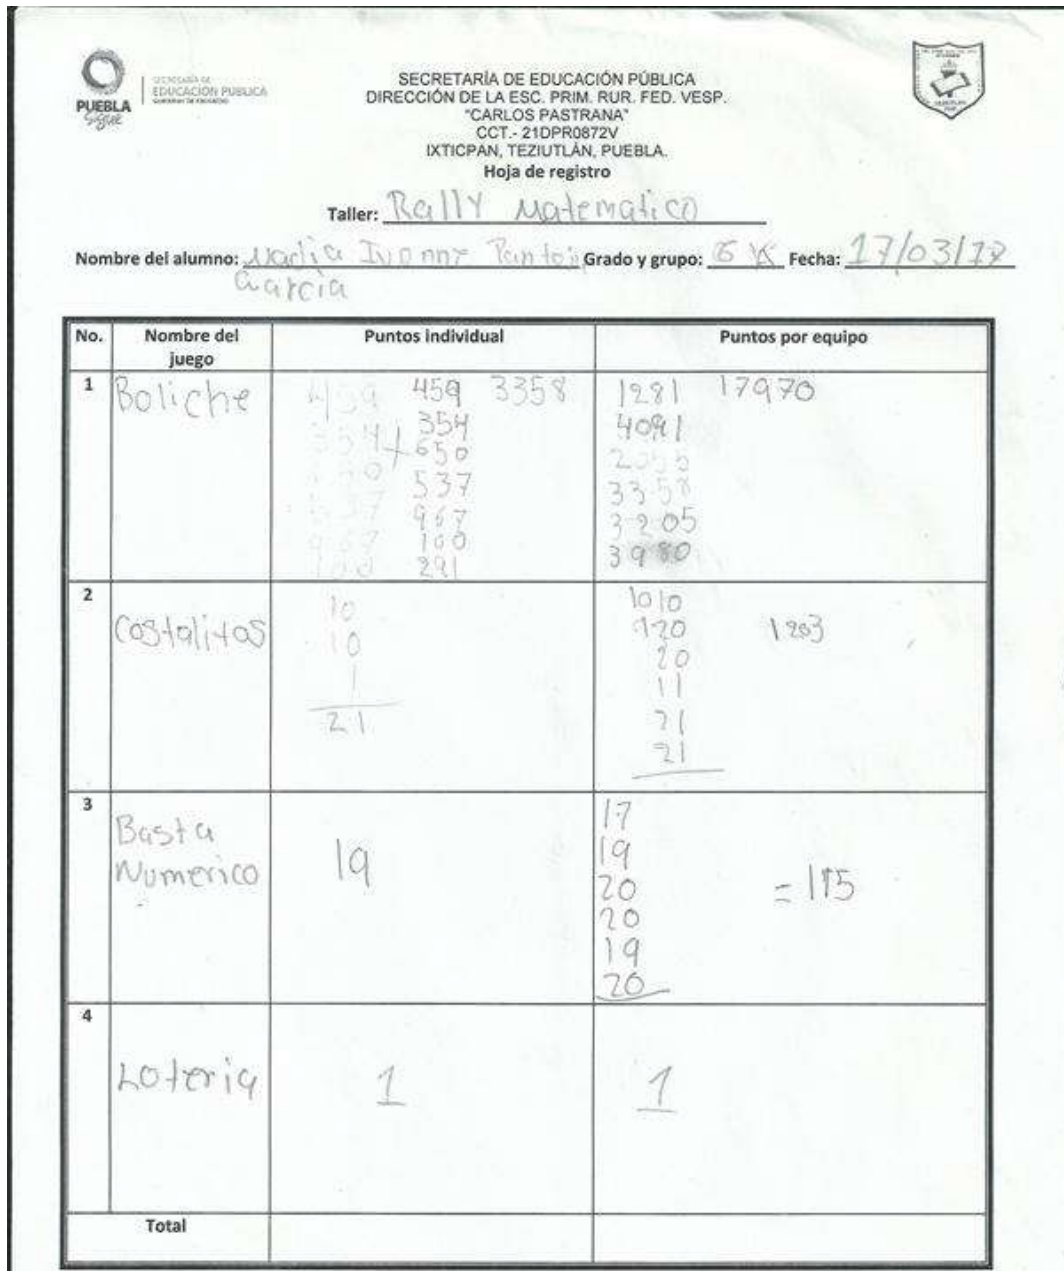 PUEBLA
Sigue
SECRETARÍA DE
EDUCACIÓN PÚBLICA
SECRETARÍA DE EDUCACIÓN PÚBLICA
DIRECCIÓN DE LA ESC. PRIM. RUR. FED. VESP.
"CARLOS PASTRANA"
CCT.- 21DPR0872V
IXTICPAN, TEZIUTLÁN, PUEBLA.
Hoja de registro
Taller: Rally Matematico
Nombre del alumno: Ivonne Grado y grupo: Fecha: 17/03/
Garcia
No. Nombre del juego Puntos individual Puntos por equipo
1 Boliche
459 459 3358
354 + 354
650 650
537 537
967 967
100 100
291
1281 17970
4091
2055
3358
3205
3980
2 Costalitos
10
10
1
21
1010
120 1203
20
11
21
21
3 Basta
Numerico
19
17
19
20 = 115
20
19
20
4 Loteria 1 1
Total